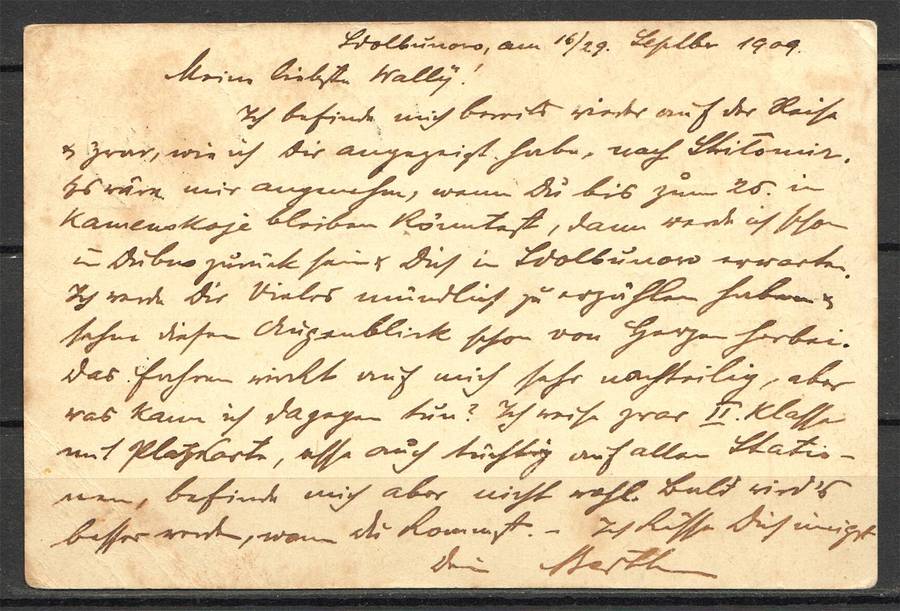 Sdolbunowo, am 16/29. Septber 1909.
Meine liebste Wally!
Ich befinde mich bereits wieder auf der Reise
& zwar, wie ich Dir angezeigt habe, nach Shitomir.
Es wäre mir angenehm, wenn Du bis zum 25. in
Kamenskoje bleiben könntest, dann werde ich schon
in Dubno zurück sein & Dich in Sdolbunowo erwarten.
Ich werde Dir Vieles mündlich zu erzählen haben &
sehne diesen Augenblick schon von Herzen herbei.
Das Fahren wirkt auf mich sehr nachteilig, aber
was kann ich dagegen tun? Ich reise zwar II. Klasse
mit Platzkarte, esse auch tüchtig auf allen Statio-
nen, befinde mich aber nicht wohl. Bald wird's
besser werden, wenn Du kommst. – Ich küsse Dich innigst
Dein